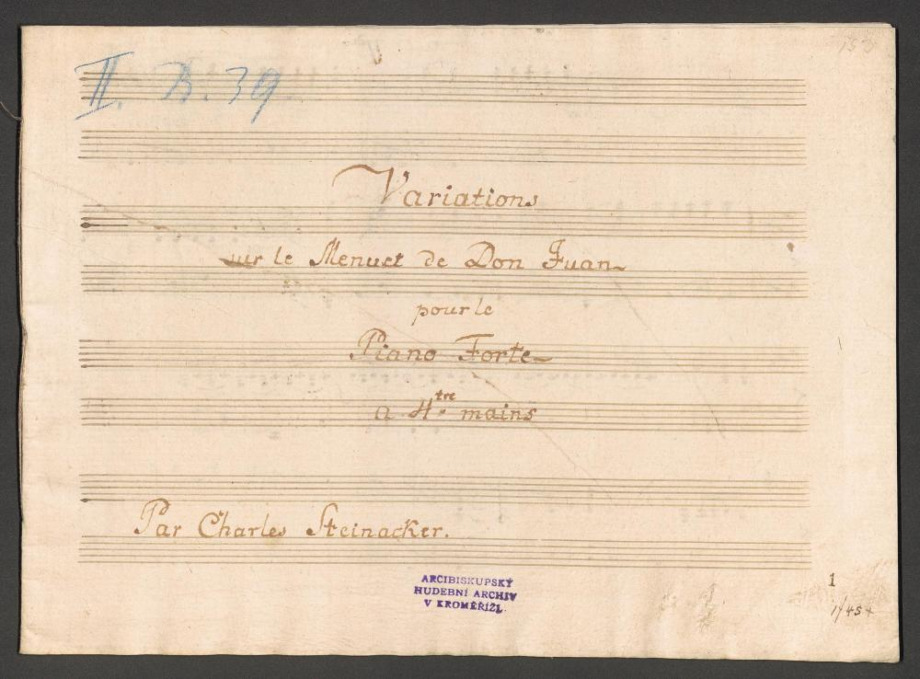 II. B. 39
Variations
sur le Menuet de Don Juan
pour le
Piano Forte
a 4tre mains
Par Charles Steinacker.
ARCIBISKUPSKÝ
HUDEBNÍ ARCHIV
V KROMĚŘÍŽI.
1